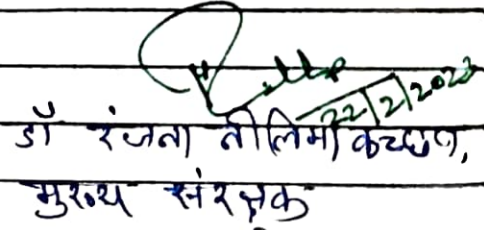 22/2/2023
डॉ रंजना नीलिमा कच्छप,
मुख्य संरक्षक